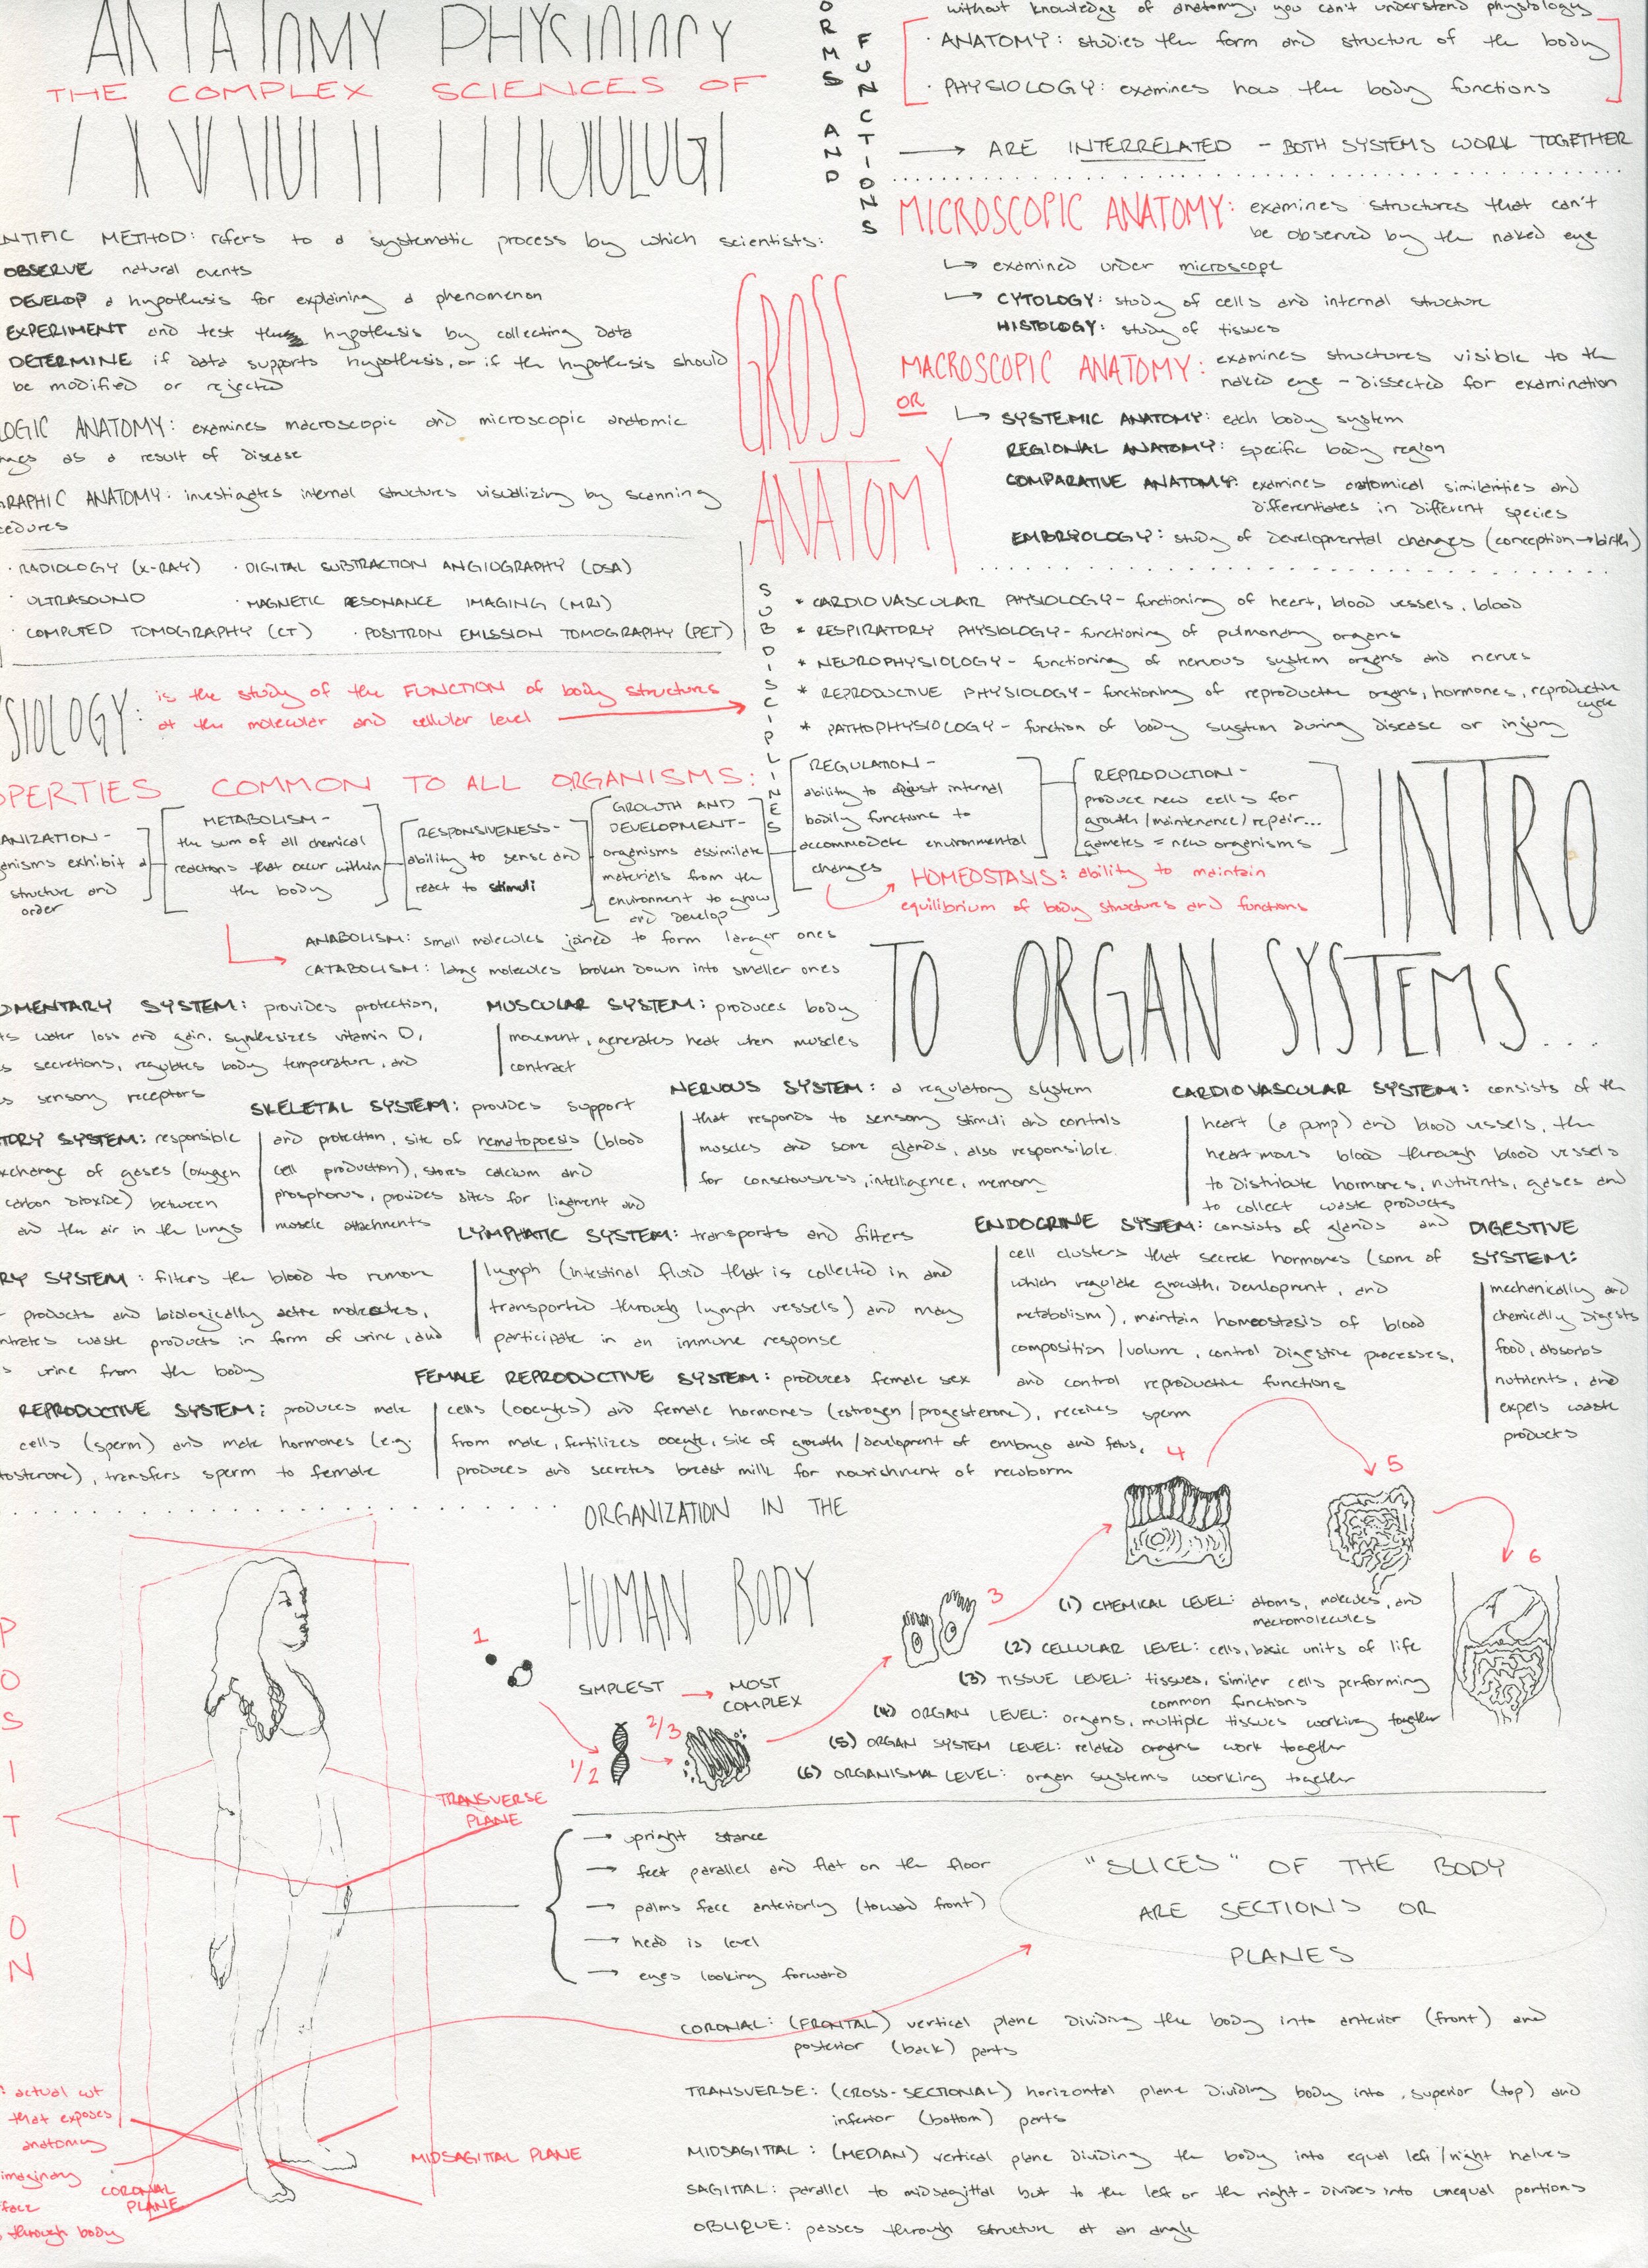 ANATOMY PHYSIOLOGY
THE COMPLEX SCIENCES OF
FORMS AND FUNCTIONS
without knowledge of anatomy, you can't understand physiology
· ANATOMY: studies the form and structure of the body
· PHYSIOLOGY: examines how the body functions
→ ARE INTERRELATED - BOTH SYSTEMS WORK TOGETHER
NTIFIC METHOD: refers to a systematic process by which scientists:
OBSERVE natural events
DEVELOP a hypothesis for explaining a phenomenon
EXPERIMENT and test the hypothesis by collecting data
DETERMINE if data supports hypothesis, or if the hypothesis should
be modified or rejected
LOGIC ANATOMY: examines macroscopic and microscopic anatomic
nges as a result of disease
GRAPHIC ANATOMY: investigates internal structures visualizing by scanning
cedures
· RADIOLOGY (X-RAY) · DIGITAL SUBTRACTION ANGIOGRAPHY (DSA)
· ULTRASOUND · MAGNETIC RESONANCE IMAGING (MRI)
· COMPUTED TOMOGRAPHY (CT) · POSITRON EMISSION TOMOGRAPHY (PET)
MICROSCOPIC ANATOMY: examines structures that can't
be observed by the naked eye
↳ examined under microscope
↳ CYTOLOGY: study of cells and internal structure
HISTOLOGY: study of tissues
GROSS
ANATOMY
OR
MACROSCOPIC ANATOMY: examines structures visible to the
naked eye - dissected for examination
↳ SYSTEMIC ANATOMY: each body system
REGIONAL ANATOMY: specific body region
COMPARATIVE ANATOMY: examines anatomical similarities and
differentiates in different species
EMBRYOLOGY: study of developmental changes (conception→birth)
SIOLOGY: is the study of the FUNCTION of body structures
at the molecular and cellular level
SUBDISCIPLINES
* CARDIOVASCULAR PHYSIOLOGY - functioning of heart, blood vessels, blood
* RESPIRATORY PHYSIOLOGY - functioning of pulmonary organs
* NEUROPHYSIOLOGY - functioning of nervous system organs and nerves
* REPRODUCTIVE PHYSIOLOGY - functioning of reproductive organs, hormones, reproductive
cycle
* PATHOPHYSIOLOGY - function of body system during disease or injury
OPERTIES COMMON TO ALL ORGANISMS:
ANIZATION -
anisms exhibit a
structure and
order
METABOLISM -
the sum of all chemical
reactions that occur within
the body
RESPONSIVENESS -
ability to sense and
react to stimuli
GROWTH AND
DEVELOPMENT -
organisms assimilate
materials from the
environment to grow
and develop
REGULATION -
ability to adjust internal
bodily functions to
accommodate environmental
changes
REPRODUCTION -
produce new cells for
growth/maintenance/repair...
gametes = new organisms
HOMEOSTASIS: ability to maintain
equilibrium of body structures and functions
ANABOLISM: small molecules joined to form larger ones
CATABOLISM: large molecules broken down into smaller ones
INTRO
TO ORGAN SYSTEMS...
UMENTARY SYSTEM: provides protection,
ts water loss and gain, synthesizes vitamin D,
s secretions, regulates body temperature, and
s sensory receptors
MUSCULAR SYSTEM: produces body
movement, generates heat when muscles
contract
SKELETAL SYSTEM: provides support
and protection, site of hematopoesis (blood
cell production), stores calcium and
phosphorus, provides sites for ligament and
muscle attachments
NERVOUS SYSTEM: a regulatory system
that responds to sensory stimuli and controls
muscles and some glands, also responsible
for consciousness, intelligence, memory
CARDIOVASCULAR SYSTEM: consists of the
heart (a pump) and blood vessels, the
heart moves blood through blood vessels
to distribute hormones, nutrients, gases and
to collect waste products
TORY SYSTEM: responsible
xchange of gases (oxygen
carbon dioxide) between
and the air in the lungs
LYMPHATIC SYSTEM: transports and filters
lymph (intestinal fluid that is collected in and
transported through lymph vessels) and may
participate in an immune response
ENDOCRINE SYSTEM: consists of glands and
cell clusters that secrete hormones (some of
which regulate growth, development, and
metabolism), maintain homeostasis of blood
composition/volume, control digestive processes,
and control reproductive functions
DIGESTIVE
SYSTEM:
mechanically and
chemically digests
food, absorbs
nutrients, and
expels waste
products
RY SYSTEM: filters the blood to remove
products and biologically active molecules,
ntrates waste products in form of urine, and
s urine from the body
FEMALE REPRODUCTIVE SYSTEM: produces female sex
cells (oocytes) and female hormones (estrogen/progesterone), receives sperm
from male, fertilizes oocyte, site of growth/development of embryo and fetus,
produces and secretes breast milk for nourishment of newborn
REPRODUCTIVE SYSTEM: produces male
cells (sperm) and male hormones (e.g.
tosterone), transfers sperm to female
ORGANIZATION IN THE
HUMAN BODY
SIMPLEST → MOST
COMPLEX
1
1/2
2/3
3
4
5
6
(1) CHEMICAL LEVEL: atoms, molecules, and
macromolecules
(2) CELLULAR LEVEL: cells, basic units of life
(3) TISSUE LEVEL: tissues, similar cells performing
common functions
(4) ORGAN LEVEL: organs, multiple tissues working together
(5) ORGAN SYSTEM LEVEL: related organs work together
(6) ORGANISMAL LEVEL: organ systems working together
POSITION
TRANSVERSE
PLANE
→ upright stance
→ feet parallel and flat on the floor
→ palms face anteriorly (toward front)
→ head is level
→ eyes looking forward
"SLICES" OF THE BODY
ARE SECTIONS OR
PLANES
CORONAL: (FRONTAL) vertical plane dividing the body into anterior (front) and
posterior (back) parts
TRANSVERSE: (CROSS-SECTIONAL) horizontal plane dividing body into superior (top) and
inferior (bottom) parts
MIDSAGITTAL: (MEDIAN) vertical plane dividing the body into equal left/right halves
SAGITTAL: parallel to midsagittal but to the left or the right - divides into unequal portions
OBLIQUE: passes through structure at an angle
: actual cut
that exposes
anatomy
imaginary
face
through body
CORONAL
PLANE
MIDSAGITTAL PLANE